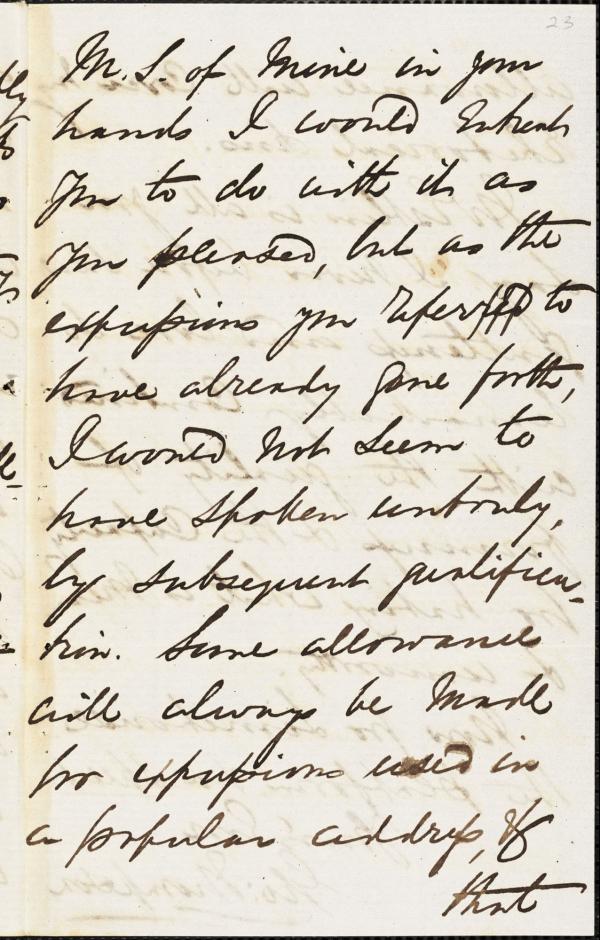 23
M.S. of Mine in your
hands I would entreat
you to do with it as
you pleased, but as the
expressions you referred to
have already gone forth,
I would not seem to
have spoken untruly,
by subsequent qualifica-
tion. Some allowance
will always be made
for expressions used in
a popular address, &
that